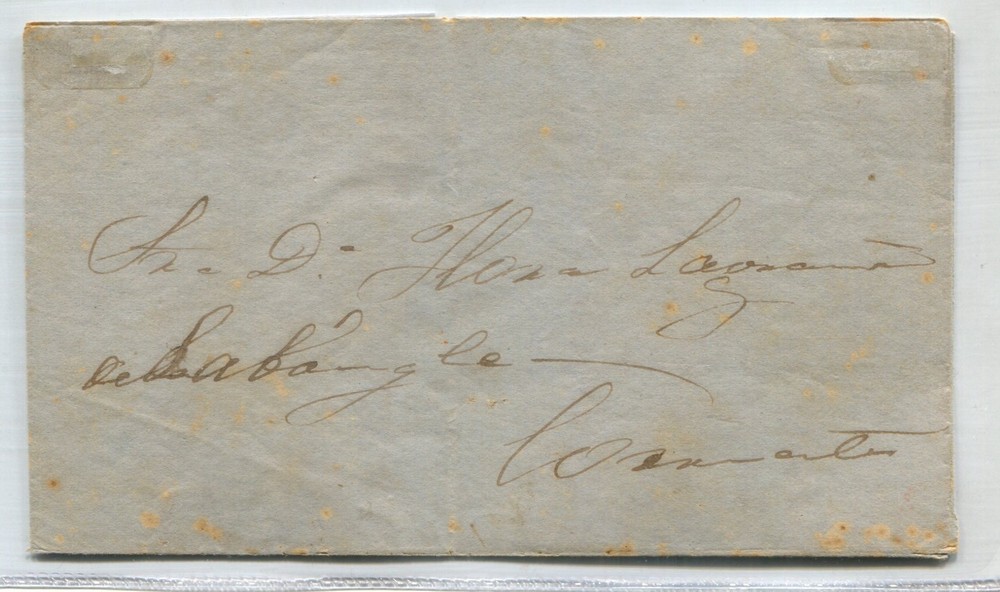 Sra Dª Flora Lagraña
de Labaingle
Corrientes